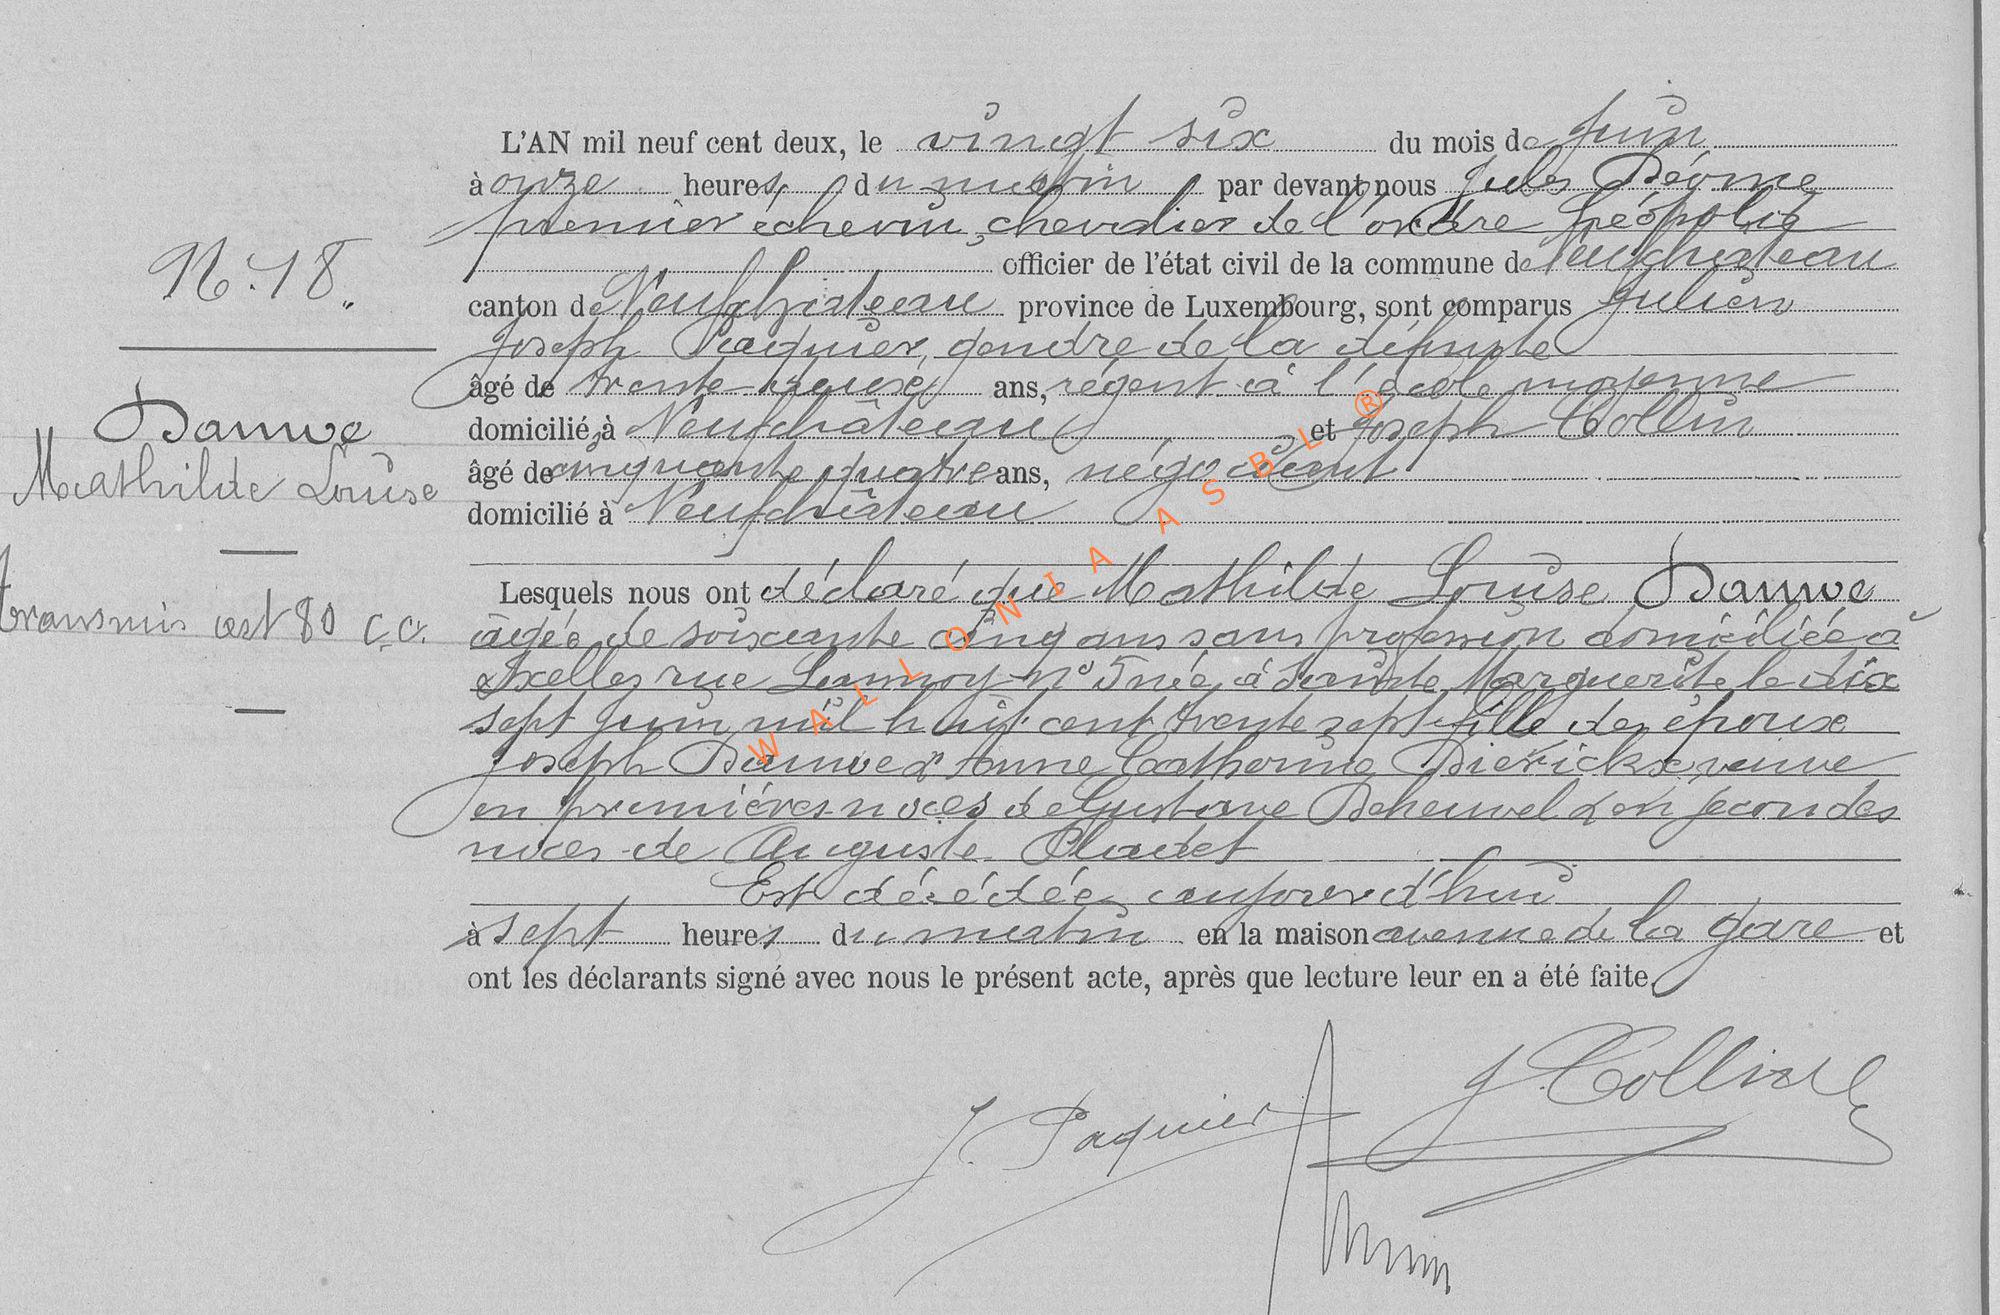 N. 18.
Dauwe
Mathilde Louise
transmis art 80 C.C.
L'AN mil neuf cent deux, le vingt six du mois de Juin
à onze heures du matin par devant nous Jules
premier échevin, chevalier de l'ordre Léopold
officier de l'état civil de la commune de Neufchateau
canton de Neufchateau province de Luxembourg, sont comparus Julien
Joseph Paquier, gendre de la défunte
âgé de trente ans, régent à l'école moyenne
domicilié à Neufchâteau et Joseph Collin
âgé de cinquante quatre ans, négociant
domicilié à Neufchâteau
Lesquels nous ont déclaré que Mathilde Louise Dauwe
âgée de soixante cinq ans sans profession domiciliée à
Ixelles rue Lannoy n° 5 née à Sainte Marguerite le dix
sept juin mil huit cent trente sept fille des époux
Joseph Dauwe & Anne Catherine Dierickx veuve
en premières noces de Gustave Deheuvel & en secondes
noces de Auguste
Est décédée aujourd'hui
à sept heures du matin en la maison avenue de la gare et
ont les déclarants signé avec nous le présent acte, après que lecture leur en a été faite.
J. Paquier
J. Collin
WALLONIA ASBL ®